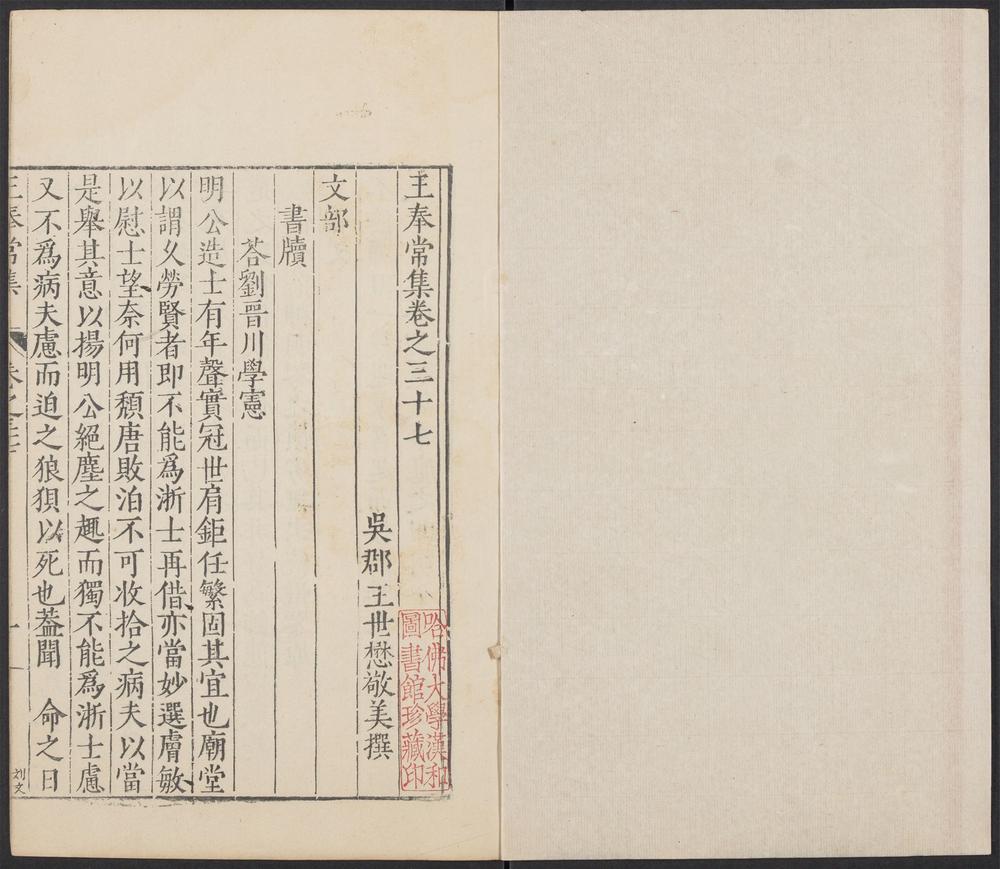 王奉常集卷之三十七
吳郡王世懋敬美撰
文部
書牘
荅劉晋川學憲
明公造士有年聲實冠世肩鉅任繁固其宜也廟堂
以謂久勞賢者即不能爲浙士再借亦當妙選膚敏
以慰士望奈何用頽唐敗泊不可收拾之病夫以當
是舉其意以揚明公絕塵之趣而獨不能爲浙士慮
又不爲病夫慮而迫之狼狽以死也蓋聞　命之日
王奉常集
卷之三十七
一
刘文
哈佛大學漢和
圖書館珍藏印